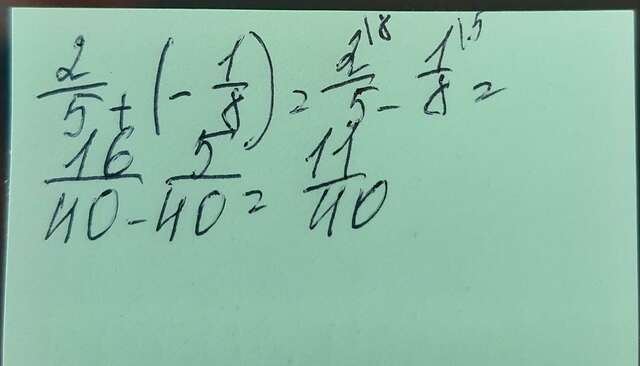 2/5 + (- 1/8) = 2/5 \8 - 1/8 \5 =
16/40 - 5/40 = 11/40